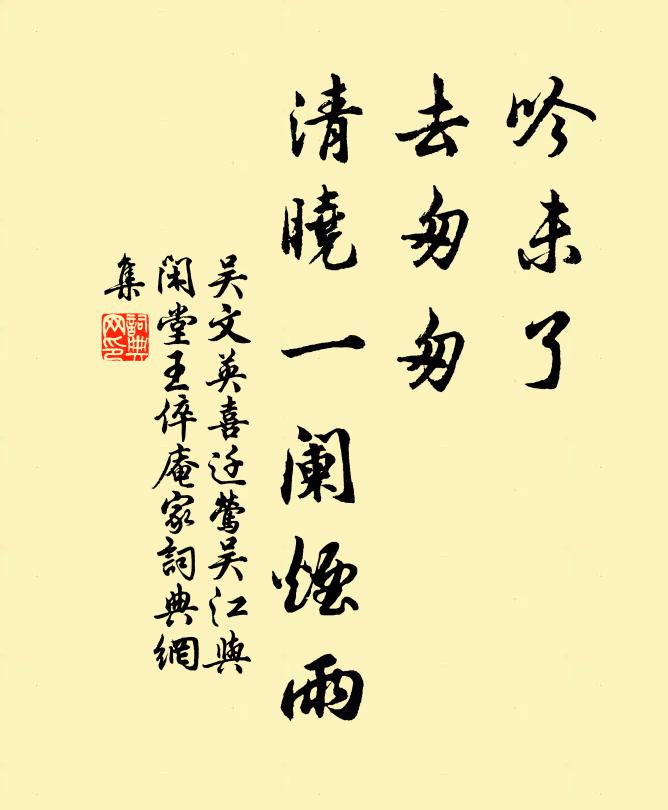 吟未了
去匆匆
清曉一闌煙雨
吴文英喜迁鶯吴江與
閑堂王倅庵家詞典網
集
詞典
网印